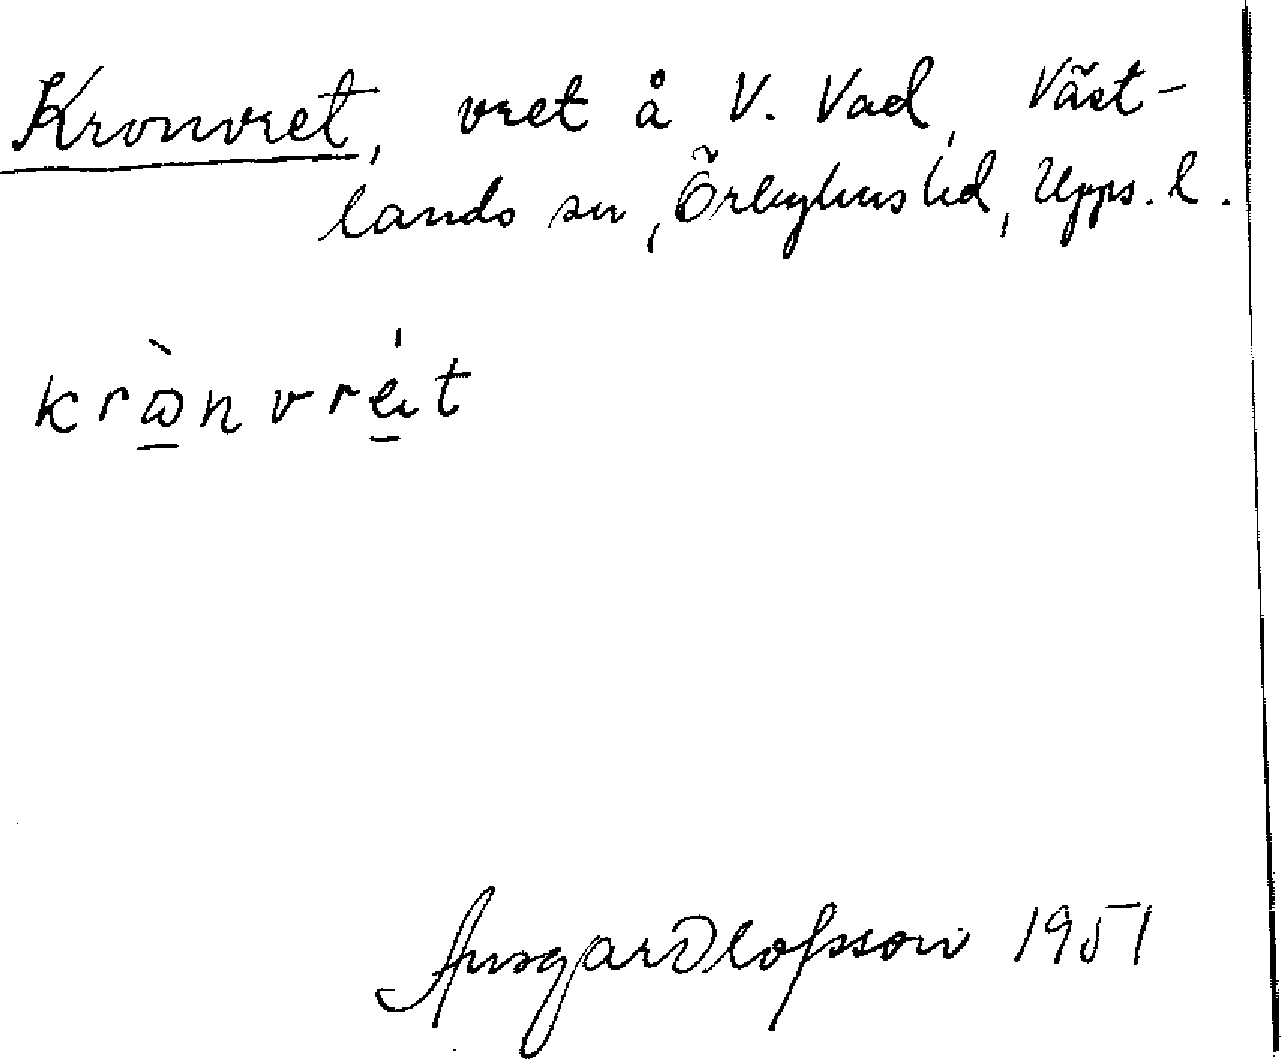 Kronvret, vret å V. Vad, Väst-
lands sn, Örbyhus hd, Upps. l.
krɷ̀nvrét
Ansgar Olofsson 1951